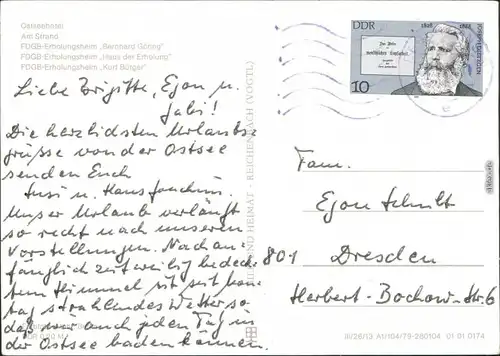 Ostseehotel
Am Strand
FDGB-Erholungsheim „Bernhard Göring"
FDGB-Erholungsheim „Haus der Erholung"
FDGB-Erholungsheim „Kurt Bürger"
Liebe Brigitte, Egon u.
Gabi!
Die herzlichsten Urlaubs-
grüsse von der Ostsee
senden Euch
Susi u. Hans Joachim.
Unser Urlaub verläuft
so recht nach unseren
Vorstellungen. Nach an-
fänglich zeitweilig bedeck-
tem Himmel ist seit
tag strahlendes Wetter so
daß wir auch jeden Tag in
der Ostsee baden können.
BILD UND HEIMAT · REICHENBACH (VOGTL)
DDR 1828 1888 JOSEPH DIETZGEN
10
Fam.
Egon Schult
801 Dresden
Herbert-Bochow-Str. 6
III/26/13 A1/104/79-280104 01 01 0174